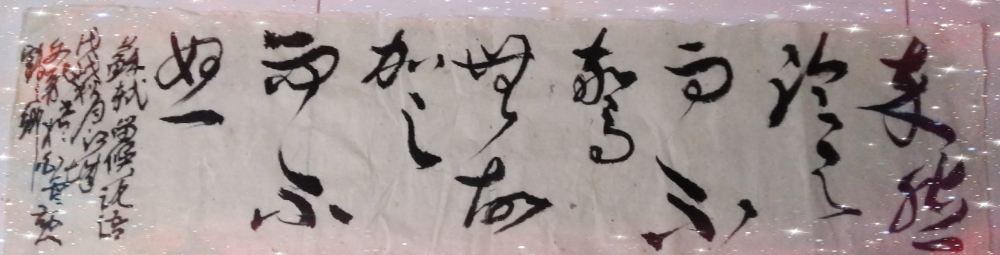 卒然
臨之
而不
驚
無故
加之
而不
怒
蘇軾留侯論語
戊戌